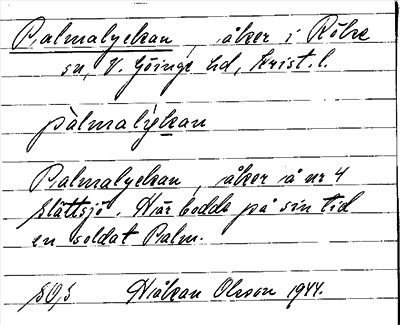 Palmalyckan, åker i Röke
sn, V. Göinge hd, Krist. l.
pàlmalýkan
Palmalyckan, åker å nr 4
Slättsjö. Här bodde på sin tid
en soldat Palm.
Håkan Olsson 1944.